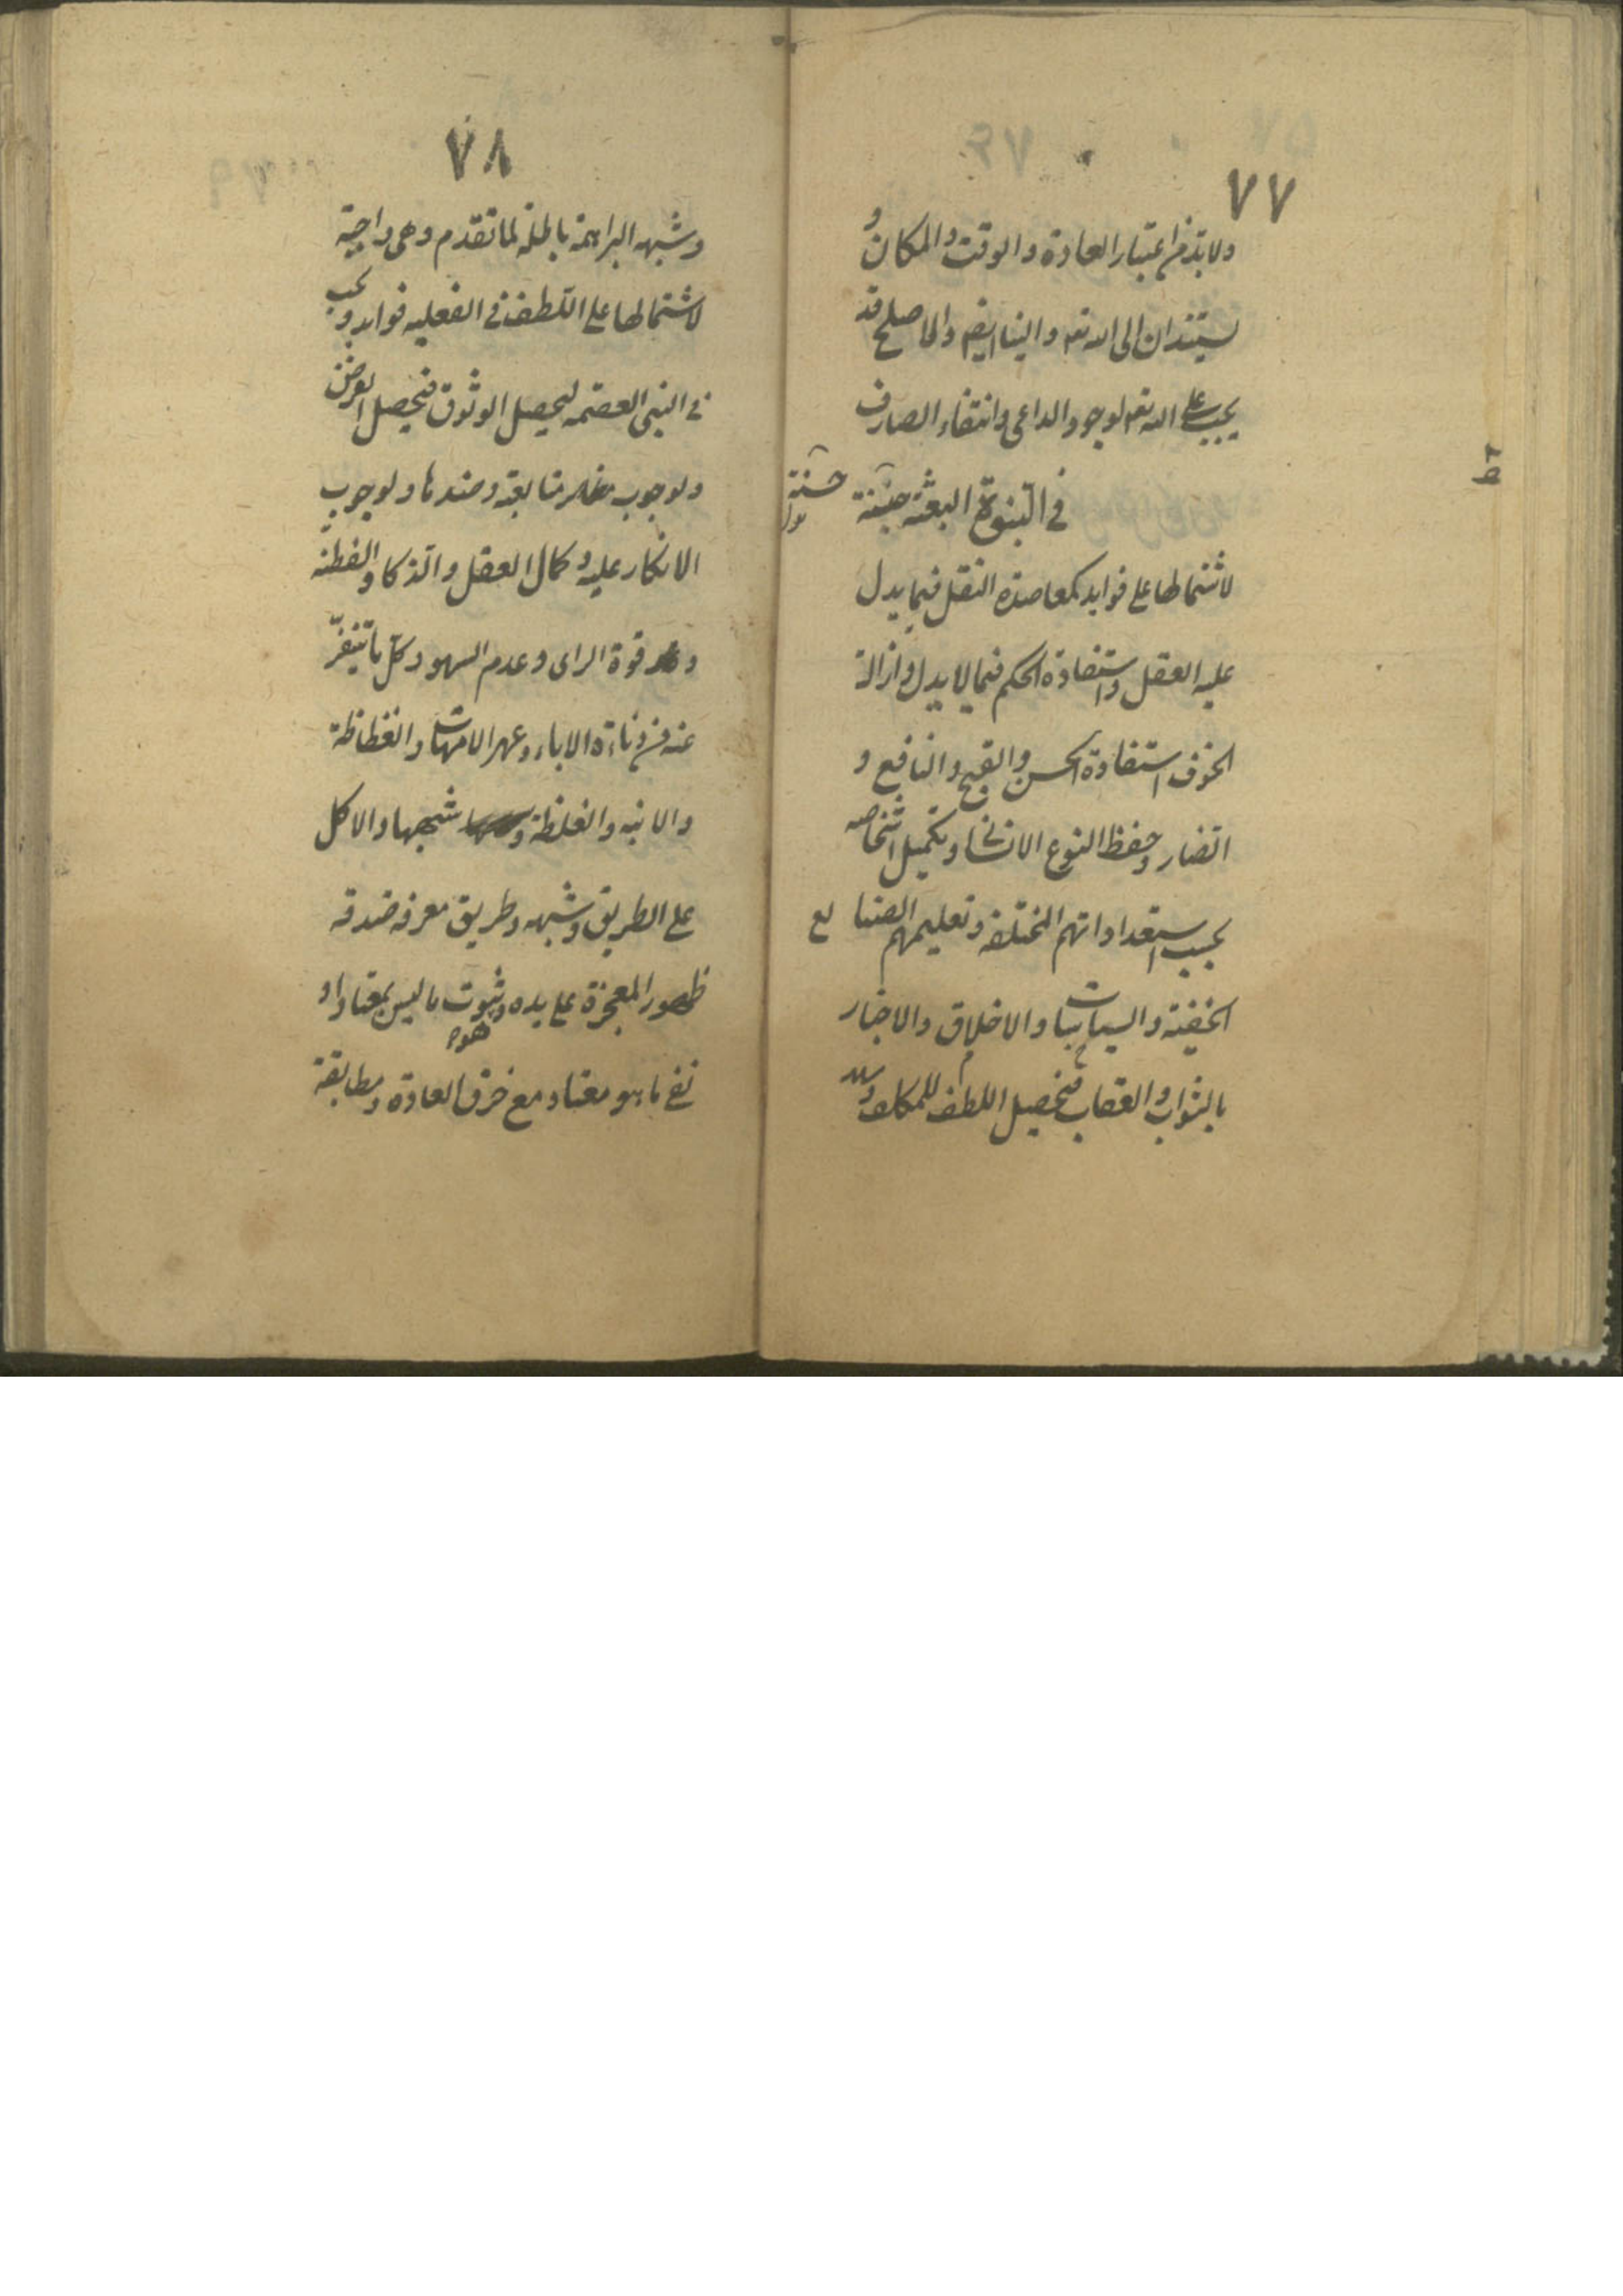 ٧٧
ولابد من اعتبار العادة والوقت والمكان و
يستندان الى الله تعم والينا ايضم والاصلح قد
يجب على الله تعم لوجود الداعى وانتفاء الصارف
فى النبوة البعثة حسنة
حسنة
لاشتمالها على فوايد كمعاضدة النقل فيما يدل
عليه العقل واستفادة الحكم فيما لا يدل وازالة
الخوف استفادة الحسن والقبح والنافع و
الضار وحفظ النوع الانسانى وتكميل اشخاصه
بحسب استعداداتهم المختلفة وتعليمهم الصنايع
الخفيه والسياسيات والاخلاق والاخبار
بالثواب والعقاب فيحصل اللطف للمكلف
٧٨
وشبهه البراهمة باطلة لما تقدم وهى واجبة
لاشتمالها على اللطف فى العقليه فوايد ويجب
فى النبى العصمه ليحصل الوثوق فيحصل الغرض
ولوجوب متابعته وضدها ولوجوب
الانكار عليه وكمال العقل والذكا والفطنه
و قوة الراى وعدم السهو وكل ما ينفر
عنه من دناءة الاباء وعهر الامهات والفظاظة
والابنه والغلظة و شبهها والاكل
على الطريق وشبهه وطريق معرفه صدقه
ظهور المعجزة على يده وهو ثبوت ما ليس بمعتاد او
نفى ما هو معتاد مع خرق العادة ومطابقة